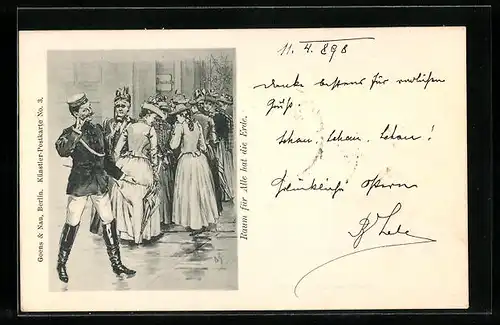 Goens & Nau, Berlin. Künstler-Postkarte No. 3.
Raum für Alle hat die Erde.
11. 4. 898
Danke bestens für
Gruß.
Schau, schau, schau!
Ostern